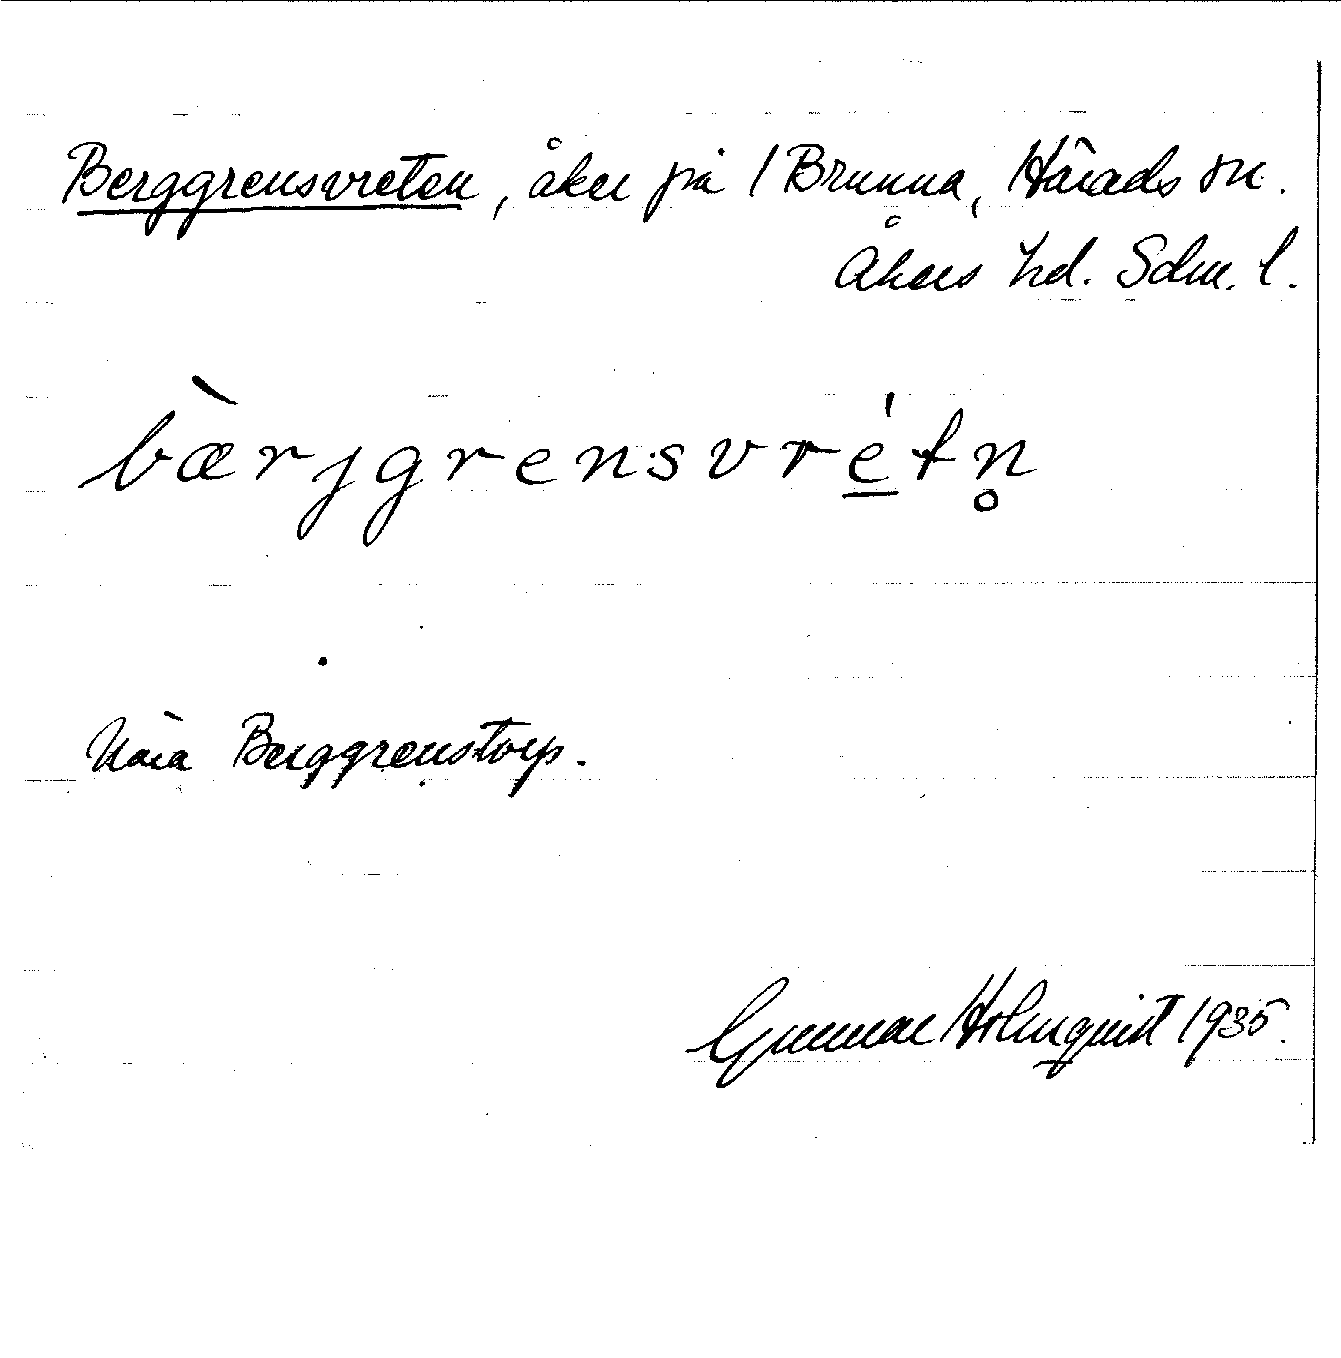 Berggrensvreten, åker på / Brunna, Härads sn.
Åkers hd. Sdm. l.
bæ̀rjgrensvré̱tn̥
Nära Berggrenstorp.
Gunnar Holmquist 1935.